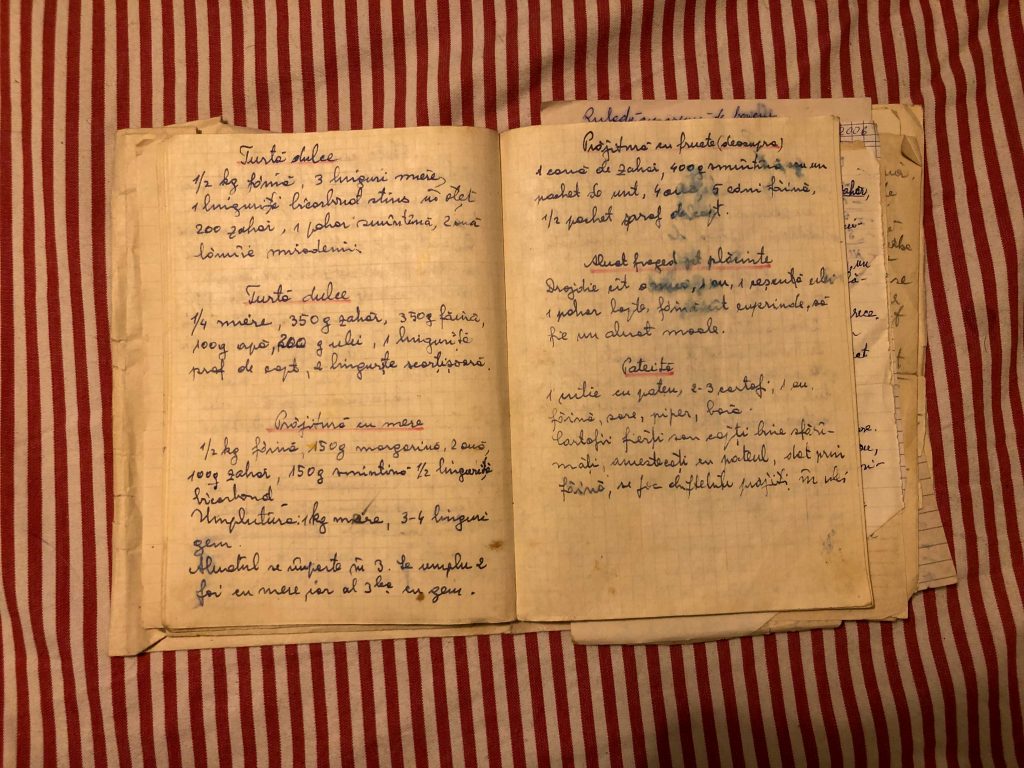 Turtă dulce
1/2 kg făină, 3 linguri miere,
1 linguriță bicarbond stins în oțet
200 zahăr, 1 pahar smîntînă, 2 ouă
lămîie mirodenii
Turtă dulce
1/4 miere, 350g zahăr, 350g făină,
100g apă, 200 g ulei, 1 linguriță
praf de copt, 2 lingurițe scorțișoară.
Prăjitură cu mere
1/2 kg făină, 150g margarină, 2 ouă,
100g zahăr, 150g smîntînă 1/2 linguriță
bicarbond
Umplutură: 1kg mere, 3-4 linguri
gem.
Aluatul se împarte în 3. Se umplu 2
foi cu mere, iar al 3lea cu gem.
Prăjitură cu fructe (deasupra)
1 cană de zahăr, 400g smîntînă cu un
pachet de unt, 4 ouă, 5 căni făină,
1/2 pachet praf de copt.
Aluat fraged plăcinte
Drojdie cît o 1 ou, 1 ulei
1 pahar lapte, făină cît cuprinde, să
fie un aluat moale.
Pateită
1 cutie cu pateu, 2-3 cartofi, 1 ou.
făină, sare, piper, boia.
Cartofii fierți sau copți bine sfărî-
mați, amestecați cu pateul, dat prin
făină, se fac chiftelute prăjiți în ulei
2006
zahăr,
un
rece,